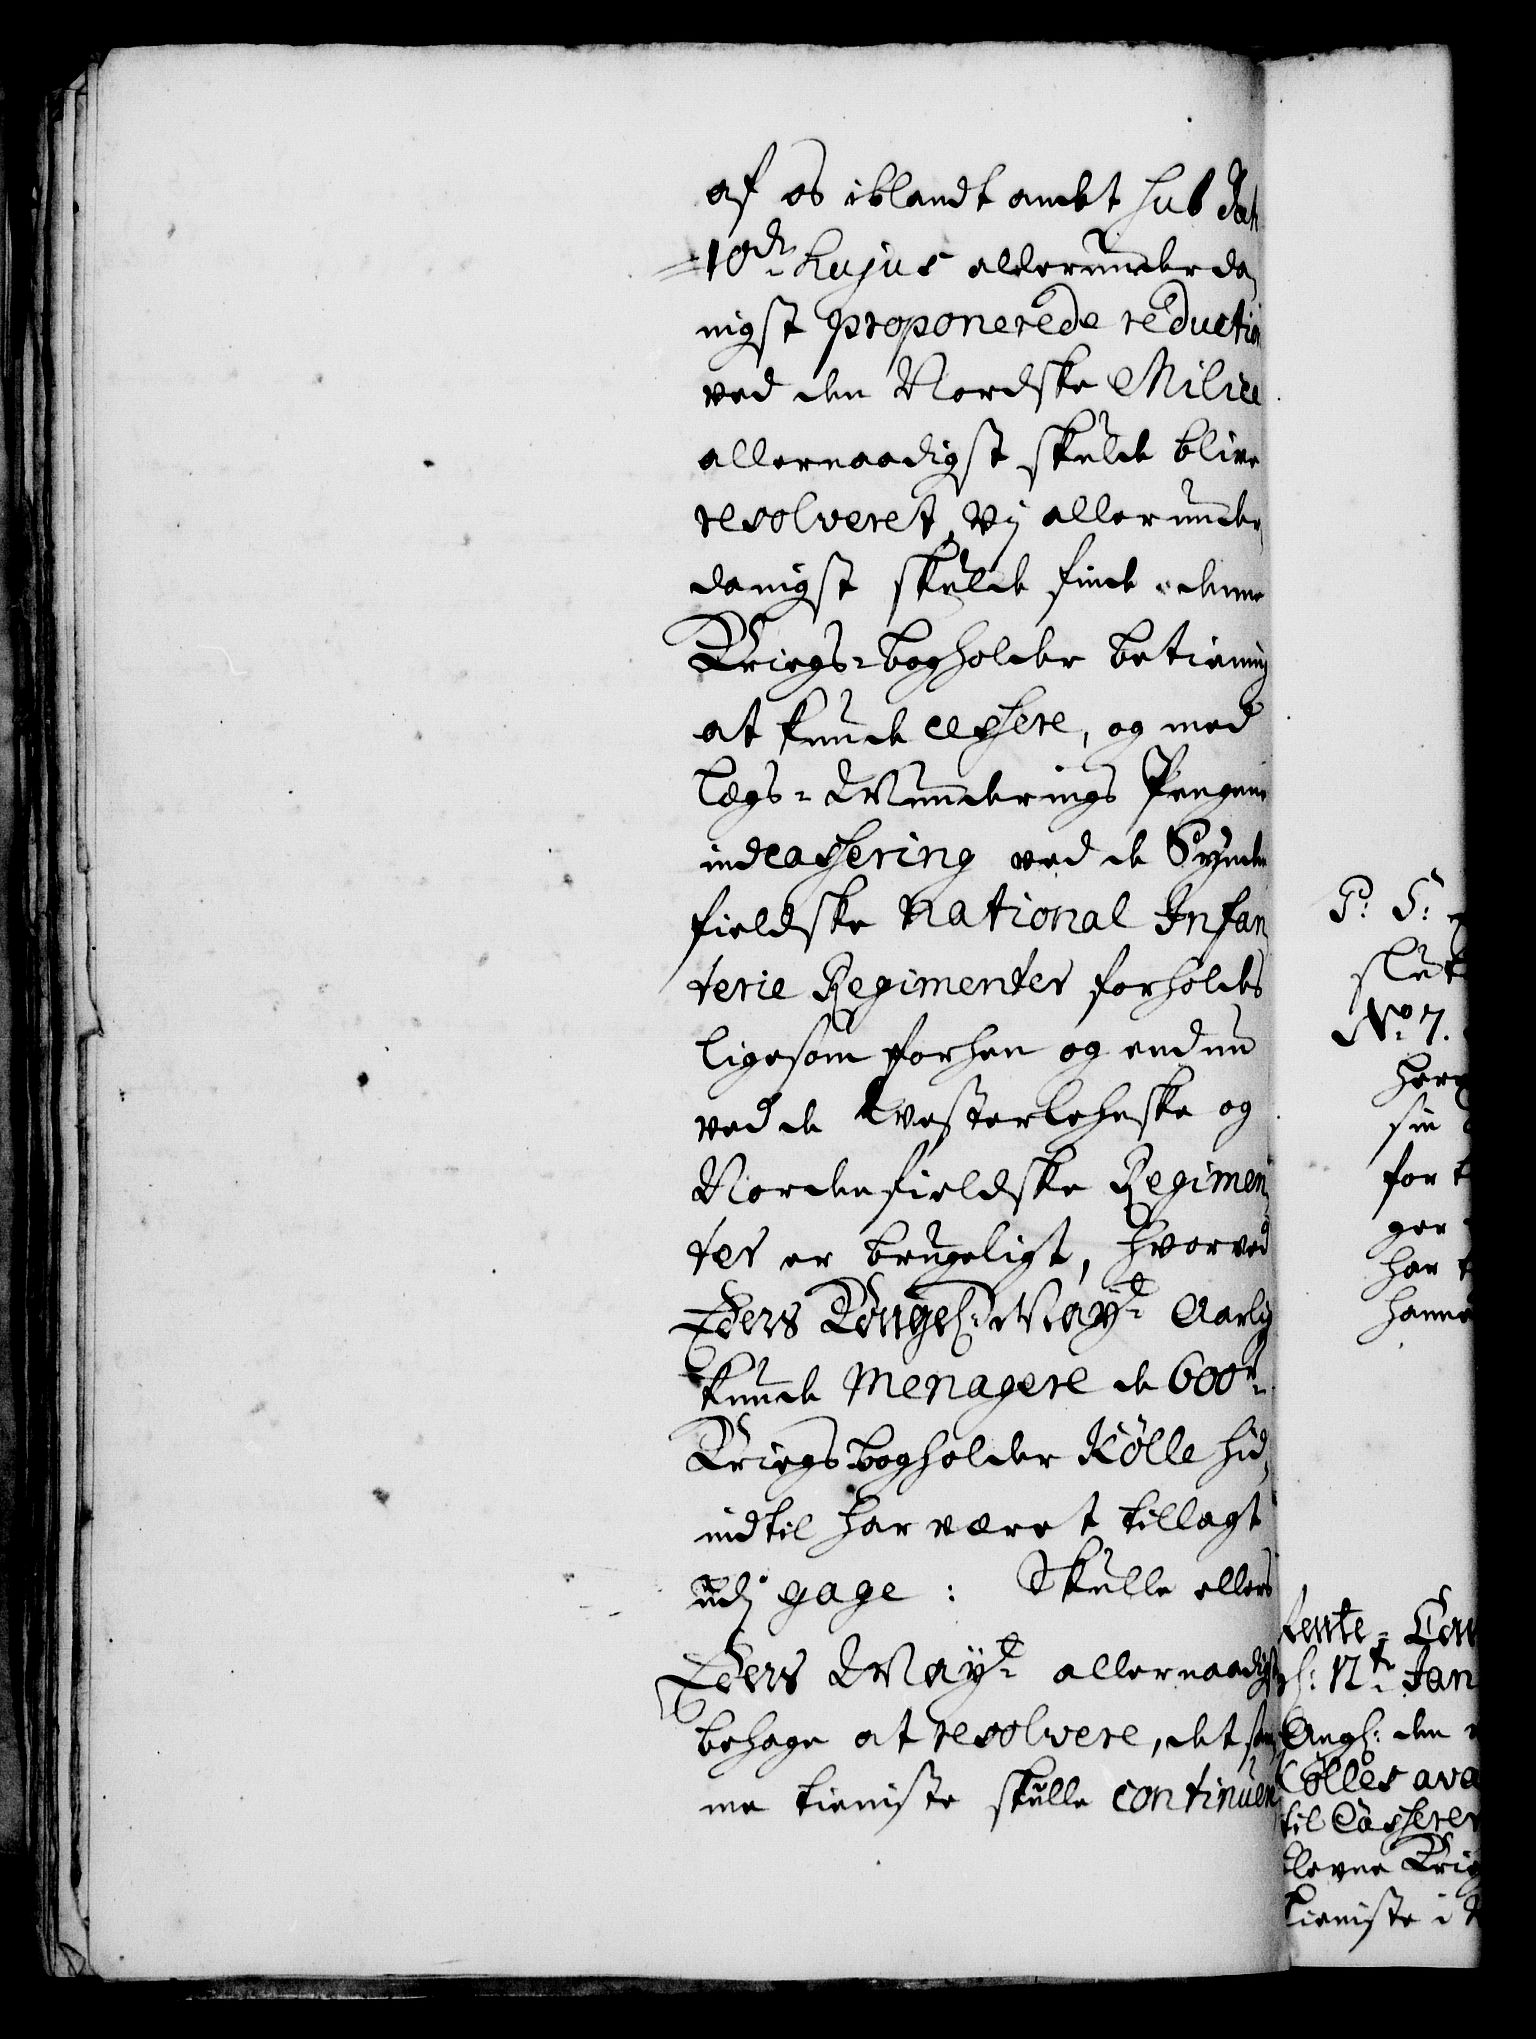 af os iblandt andet sub dat
10de hujus allerunderda
nigst proponerede reduction
ved den Nordske Milice
allernaadigst skulde blive
resolveret, Vj allerunder
danigst skulde finde denne
Kriegs-bogholder betiening
at kunde cessere, og med
Lægs-Munderings Pengene
indcassering ved de Synden
fieldske National Infan
terie Regimenter forholdes
ligesom forhen og endnu
ved de Vesterlehnske og
Nordenfieldske Regimen
ter er brugeligt, hvorved
Eders Kongel: Mayt Aarlig
kunde menagere de 600 r
Kriegsbogholder Kölle hid
indtil har været tillagt
udj gage: Skulle ellers
Eders Mayt allernaadigst
behage at resolvere, det sam
me tieniste skulle continuere
P: S:
slut
No 7.
her
sin
for
ger
har
hanne
Rente-Cam
12te Jan
Angl: den
Kölles ava
til Casserer
blevne Krie
tieniste i